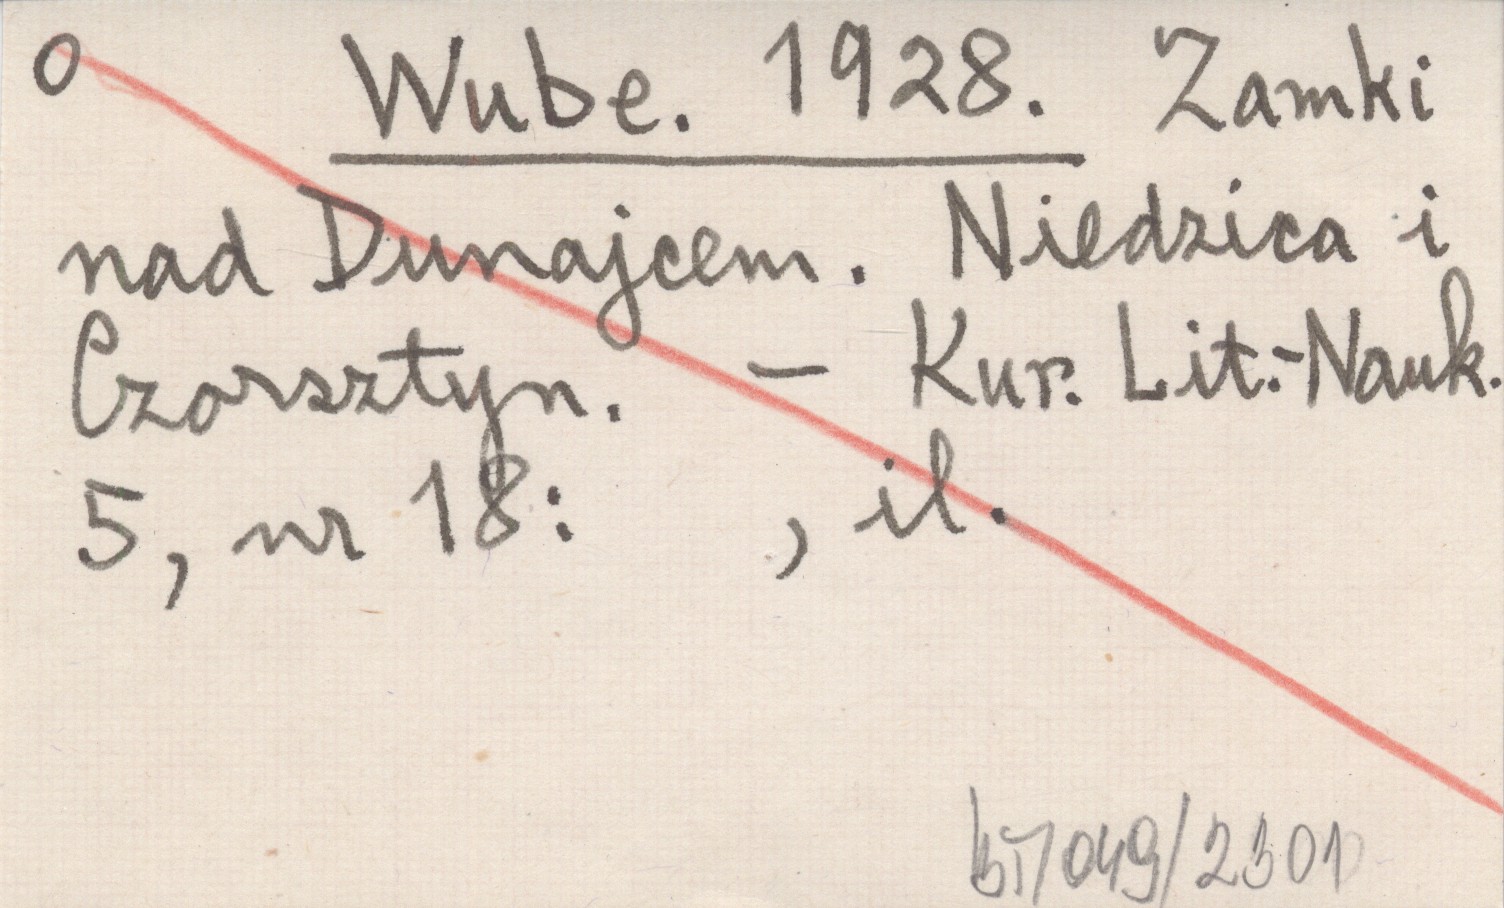 O Wube. 1928. Zamki
nad Dunajcem. Niedzica i
Czorsztyn. – Kur. Lit.-Nauk.
5, nr 18: , il.
/049/2301